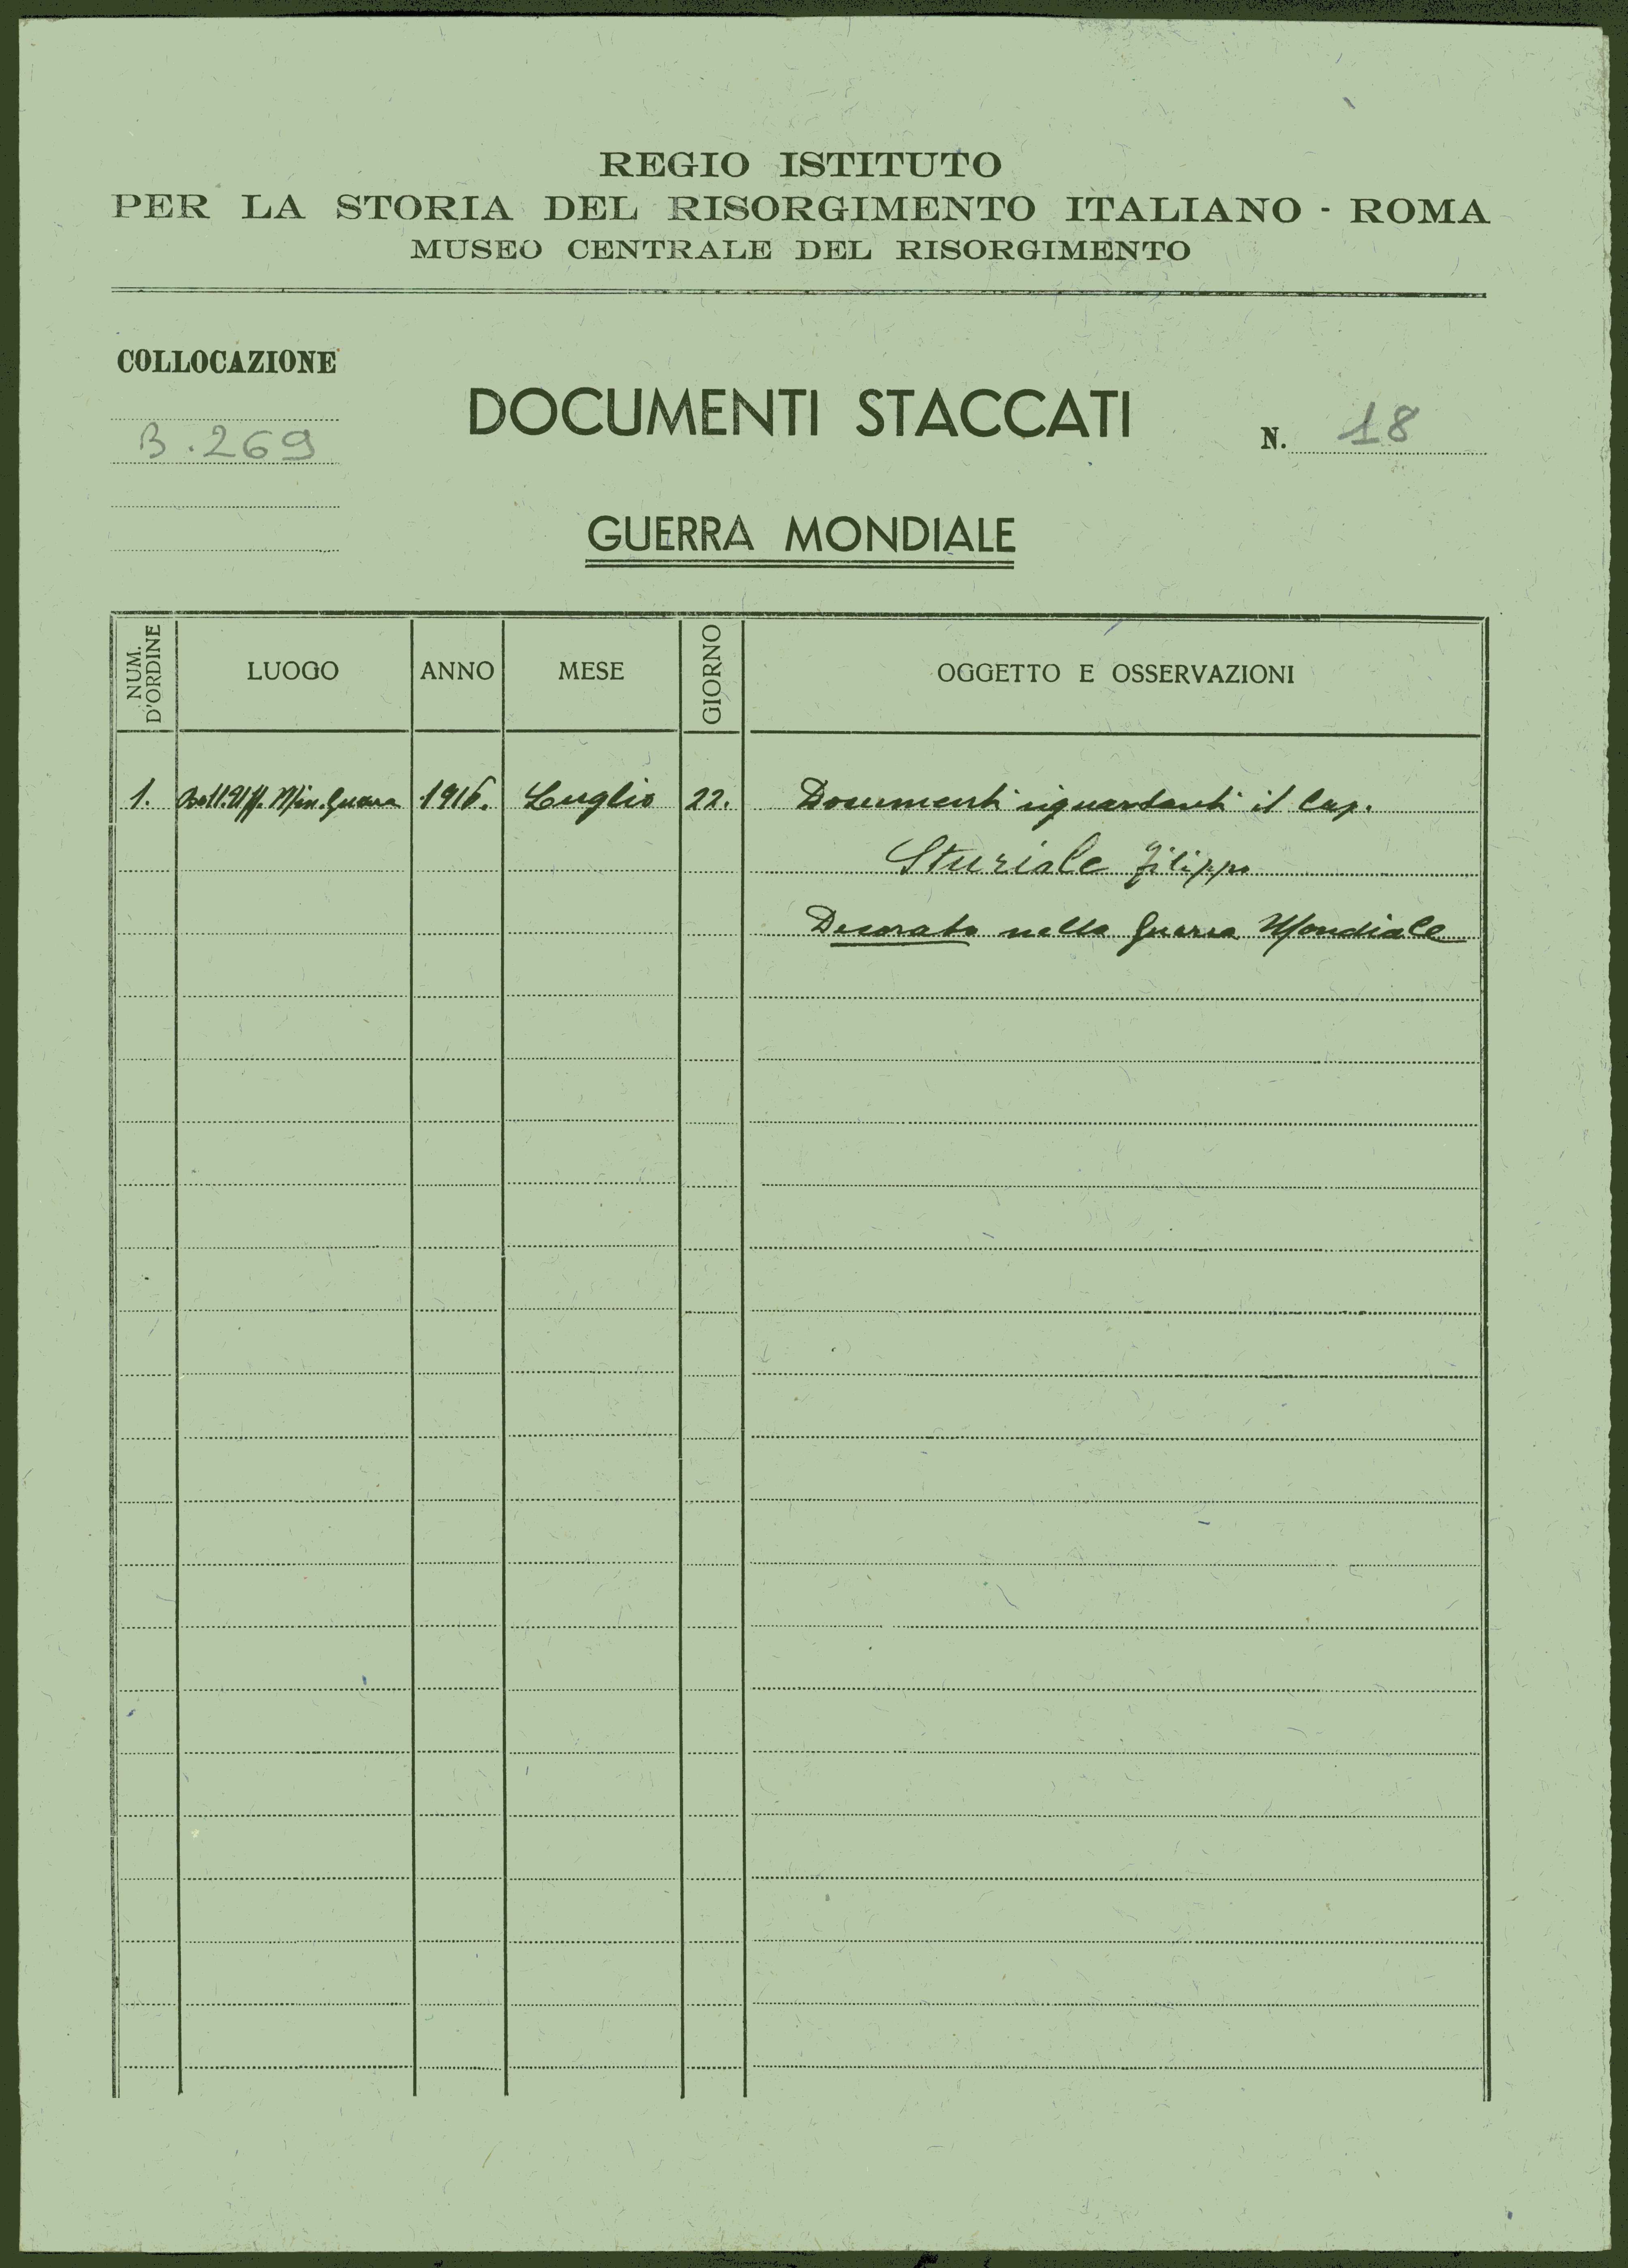 REGIO ISTITUTO
PER LA STORIA DEL RISORGIMENTO ITALIANO - ROMA
MUSEO CENTRALE DEL RISORGIMENTO
COLLOCAZIONE
B. 269
DOCUMENTI STACCATI
N. 18
GUERRA MONDIALE
NUM. D'ORDINE LUOGO ANNO MESE GIORNO OGGETTO E OSSERVAZIONI
1. Boll. Uff. Min. Guerra 1916. Luglio 22. Documenti riguardanti il Cap.
Sturiale Filippo
Decorato nella Guerra Mondiale